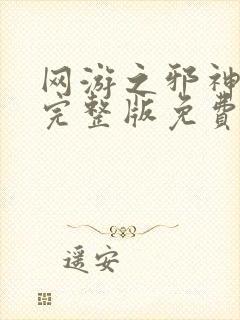 网游之邪神
完整版免費
遥安